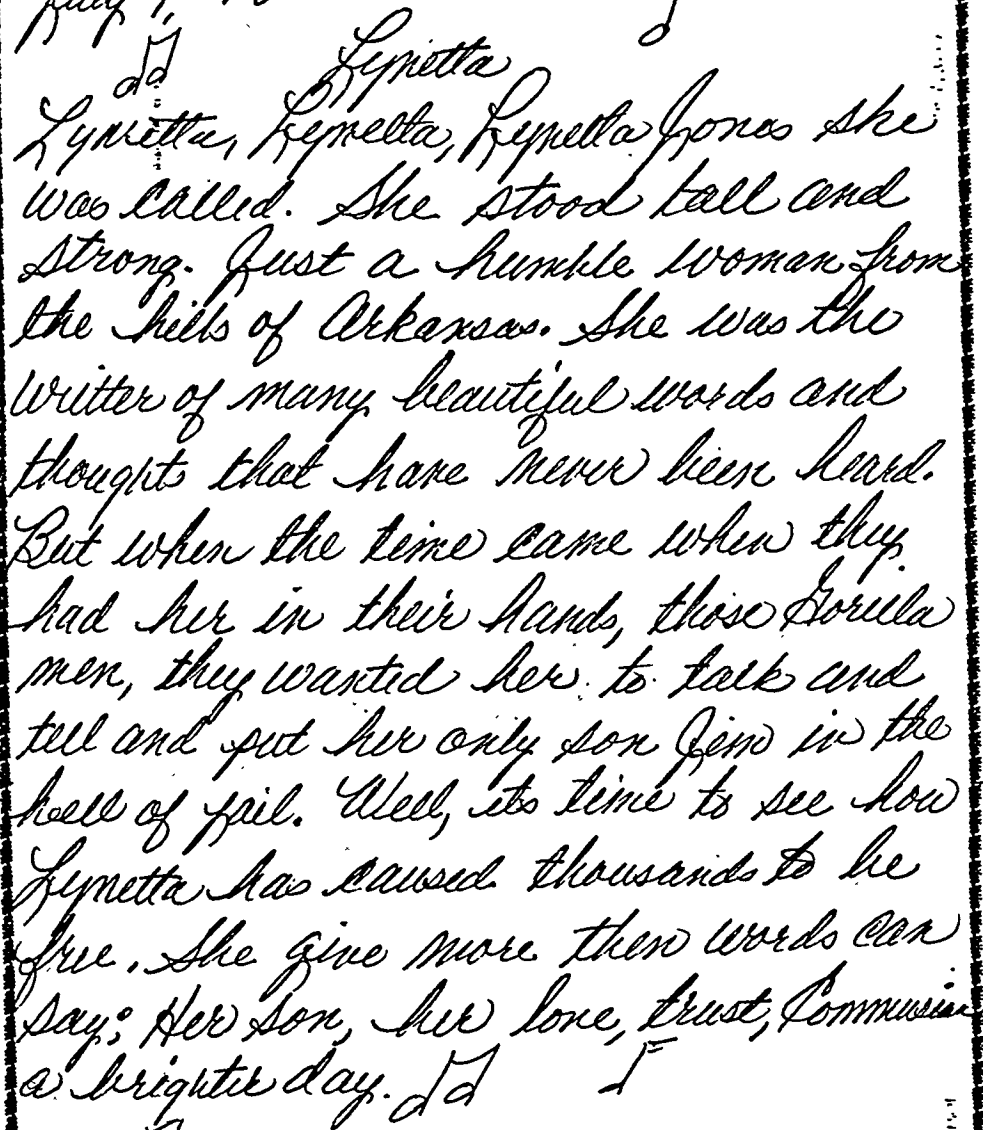 July 9,
Lynetta
Lynetta, Lynetta, Lynetta Jones she
was called. She stood tall and
strong. Just a humble woman from
the hills of Arkansas. She was the
writter of many beautiful words and
thoughts that have never been heard.
But when the time came when they
had her in their hands, those Gorilla
men, they wanted her to talk and
tell and put her only son Jim in the
hell of jail. Well, its time to see how
Lynetta has caused thousands to be
free. She give more then words can
say; Her son, her love, trust,
a brighter day.